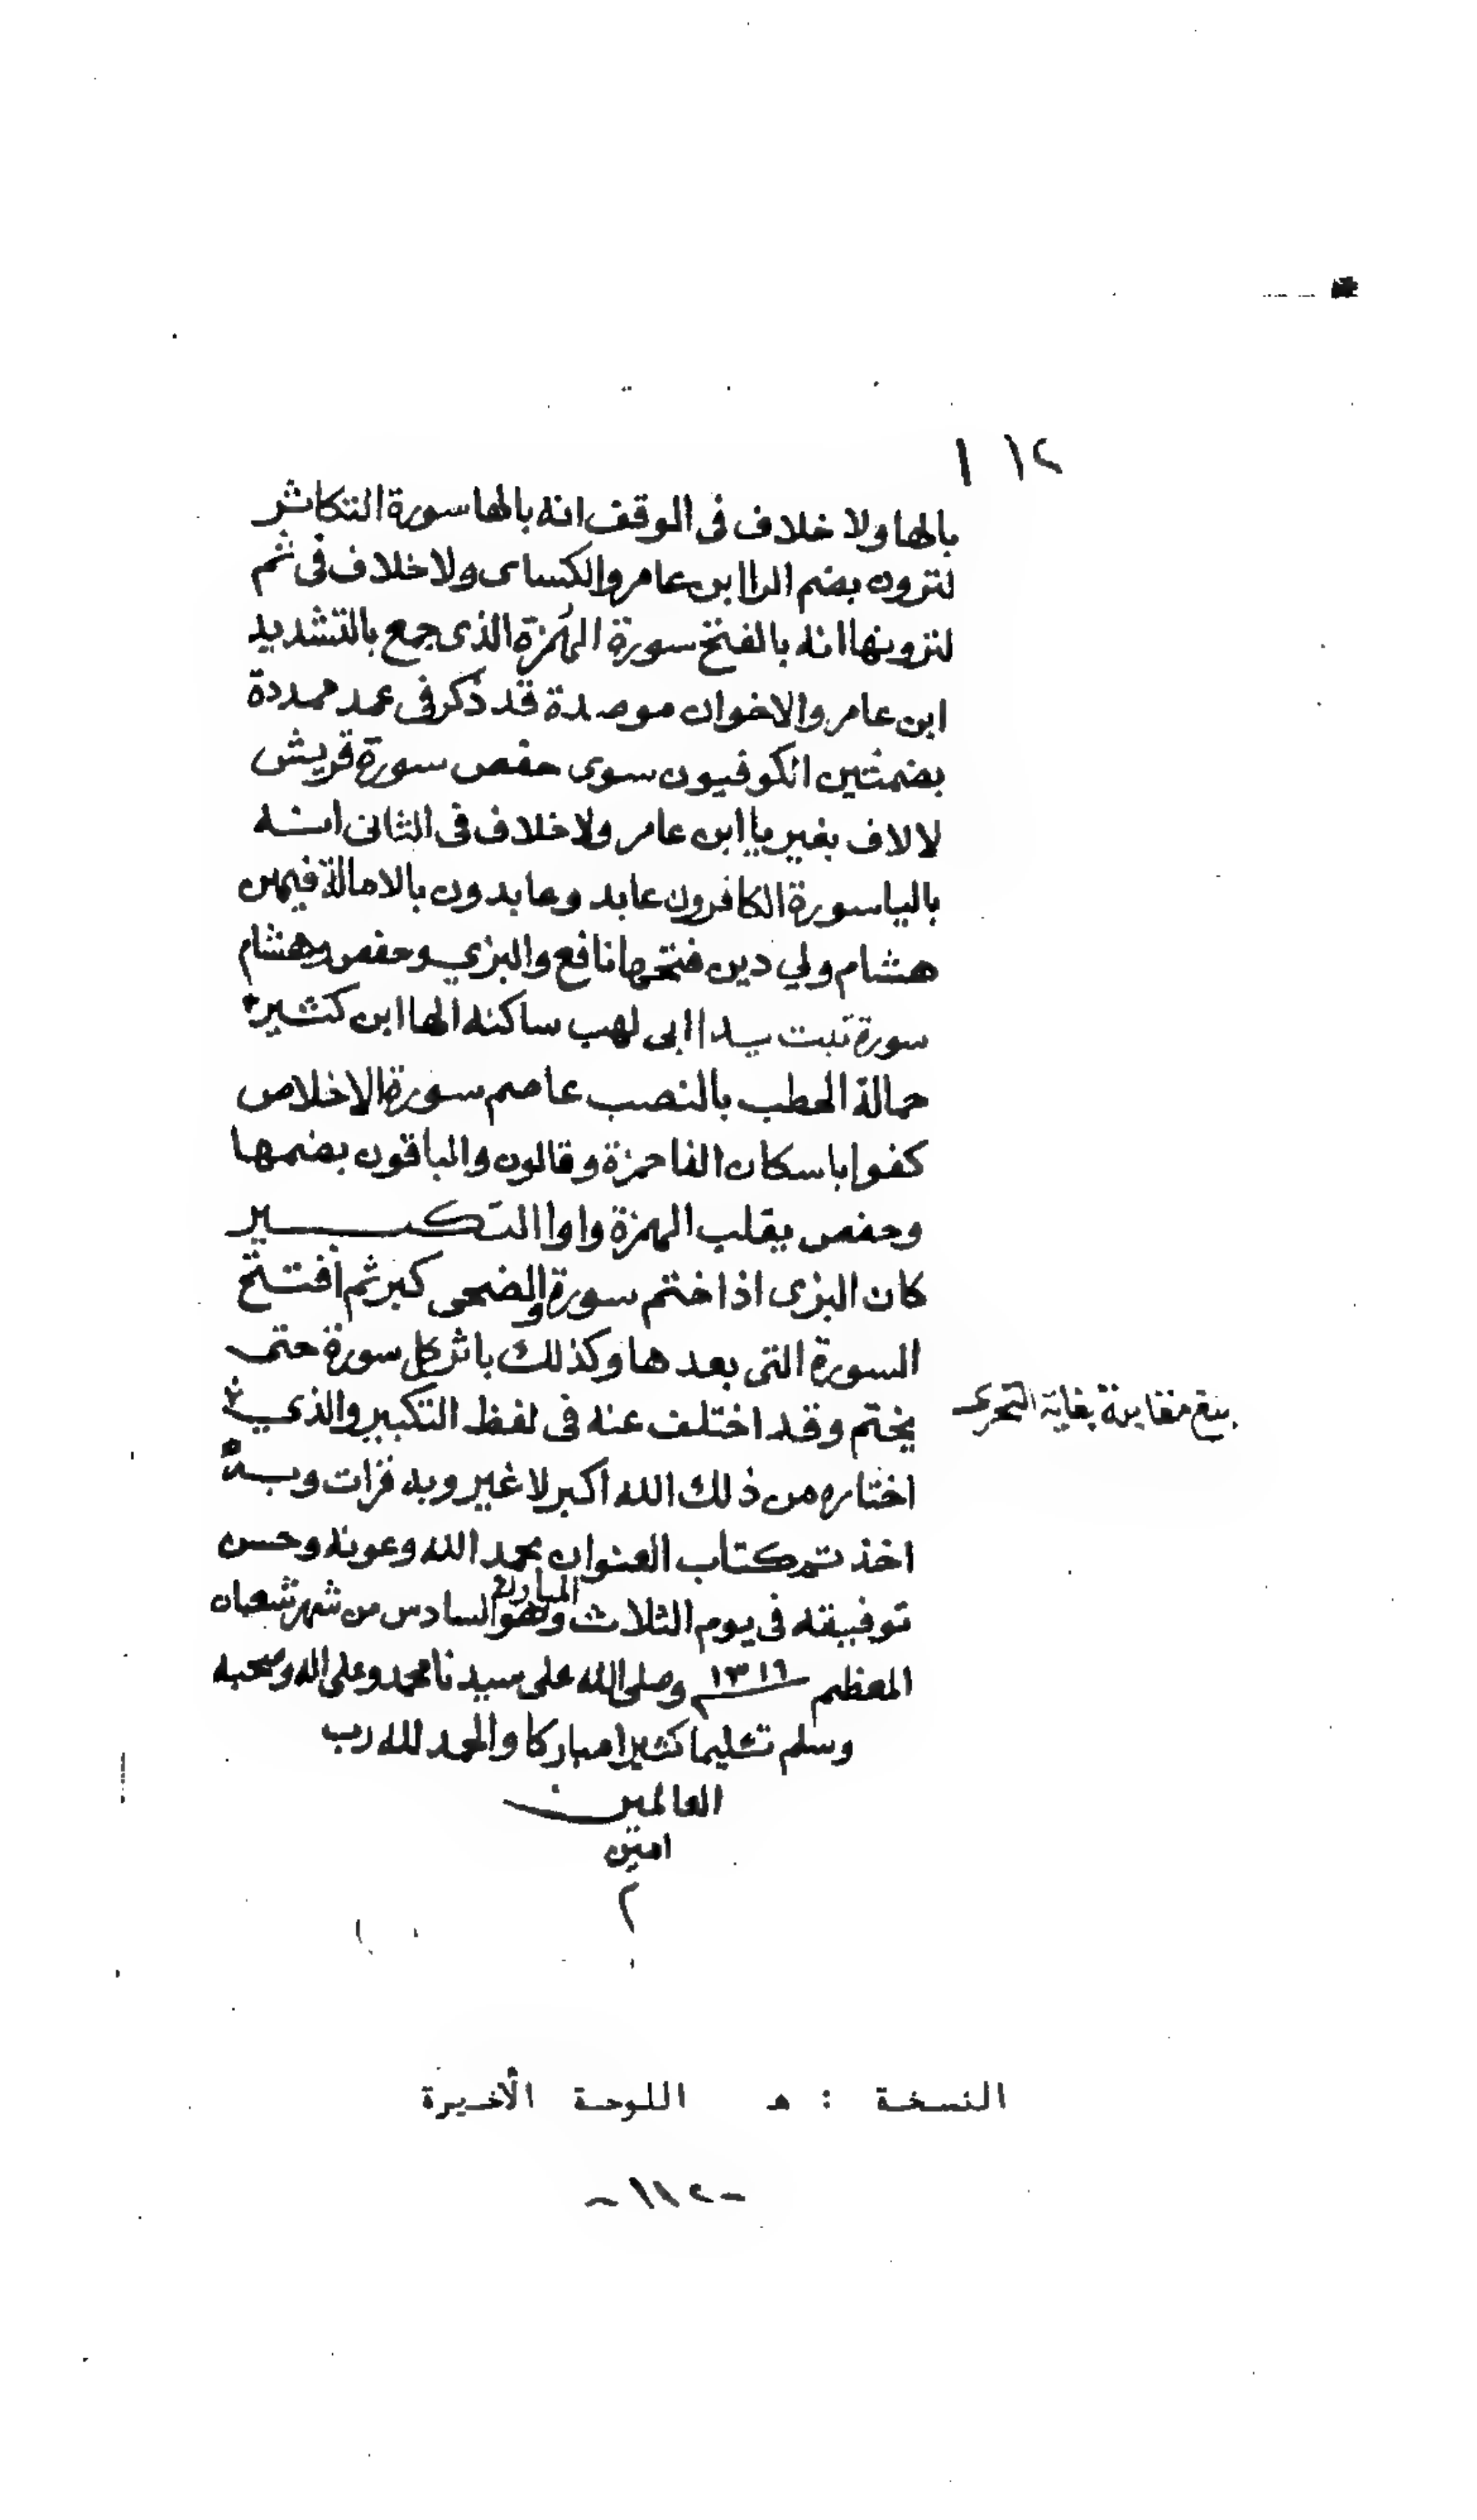 ١١٢
بالها ولا خلاف فى الوقف انه بالها سورة التكاثر
لترون بضم الراابن عامر والكساى ولا خلاف فى ثم
لترونها انه بالفتح سورة الهمزة الذى جمع بالتشديد
ابن عامر والاخوان موصدة قد ذكر فى عمد ممددة
بضمتين الكوفيون سوى حفص سورة قريش
لالاف بغير يا ابن عامر ولا خلاف فى الثانى انه
باليا سورة الكافرون عابد وعابدون بالامالة فيهن
هشام ولي دين فتحها نافع والبزي وحفص وهشام
سورة تبت يدا ابى لهب ساكنه الها ابن كثير
حمالة الحطب بالنصب عاصم سورة الاخلاص
كفوا باسكان الفا حمزة وقالون والباقون بضمها
وحفص يقلب الهمزة واوا التكبير
كان البزى اذا ختم سورة والضحى كبر ثم افتتح
السورة التى بعدها وكذلك باثر كل سورة حتى
يختم وقد اختلف عنه فى لفظ التكبير والذي
بلغ مقابلة بغاية التحرى
اختاره من ذلك الله اكبر لا غير وبه قرات وبه
اخذ تم كتاب العنوان بحمد الله وعونه وحسن
توفيقه فى يوم الثلاث المبارك وهو السادس من شهر شعبان
المعظم ١٣١٦ وصلى الله على سيدنا محمد وعلى اله وصحبه
وسلم تسليما كثيرا مباركا والحمد لله رب
العالمين
امين
م
النسخة : هـ اللوحة الأخيرة
-١١٢-